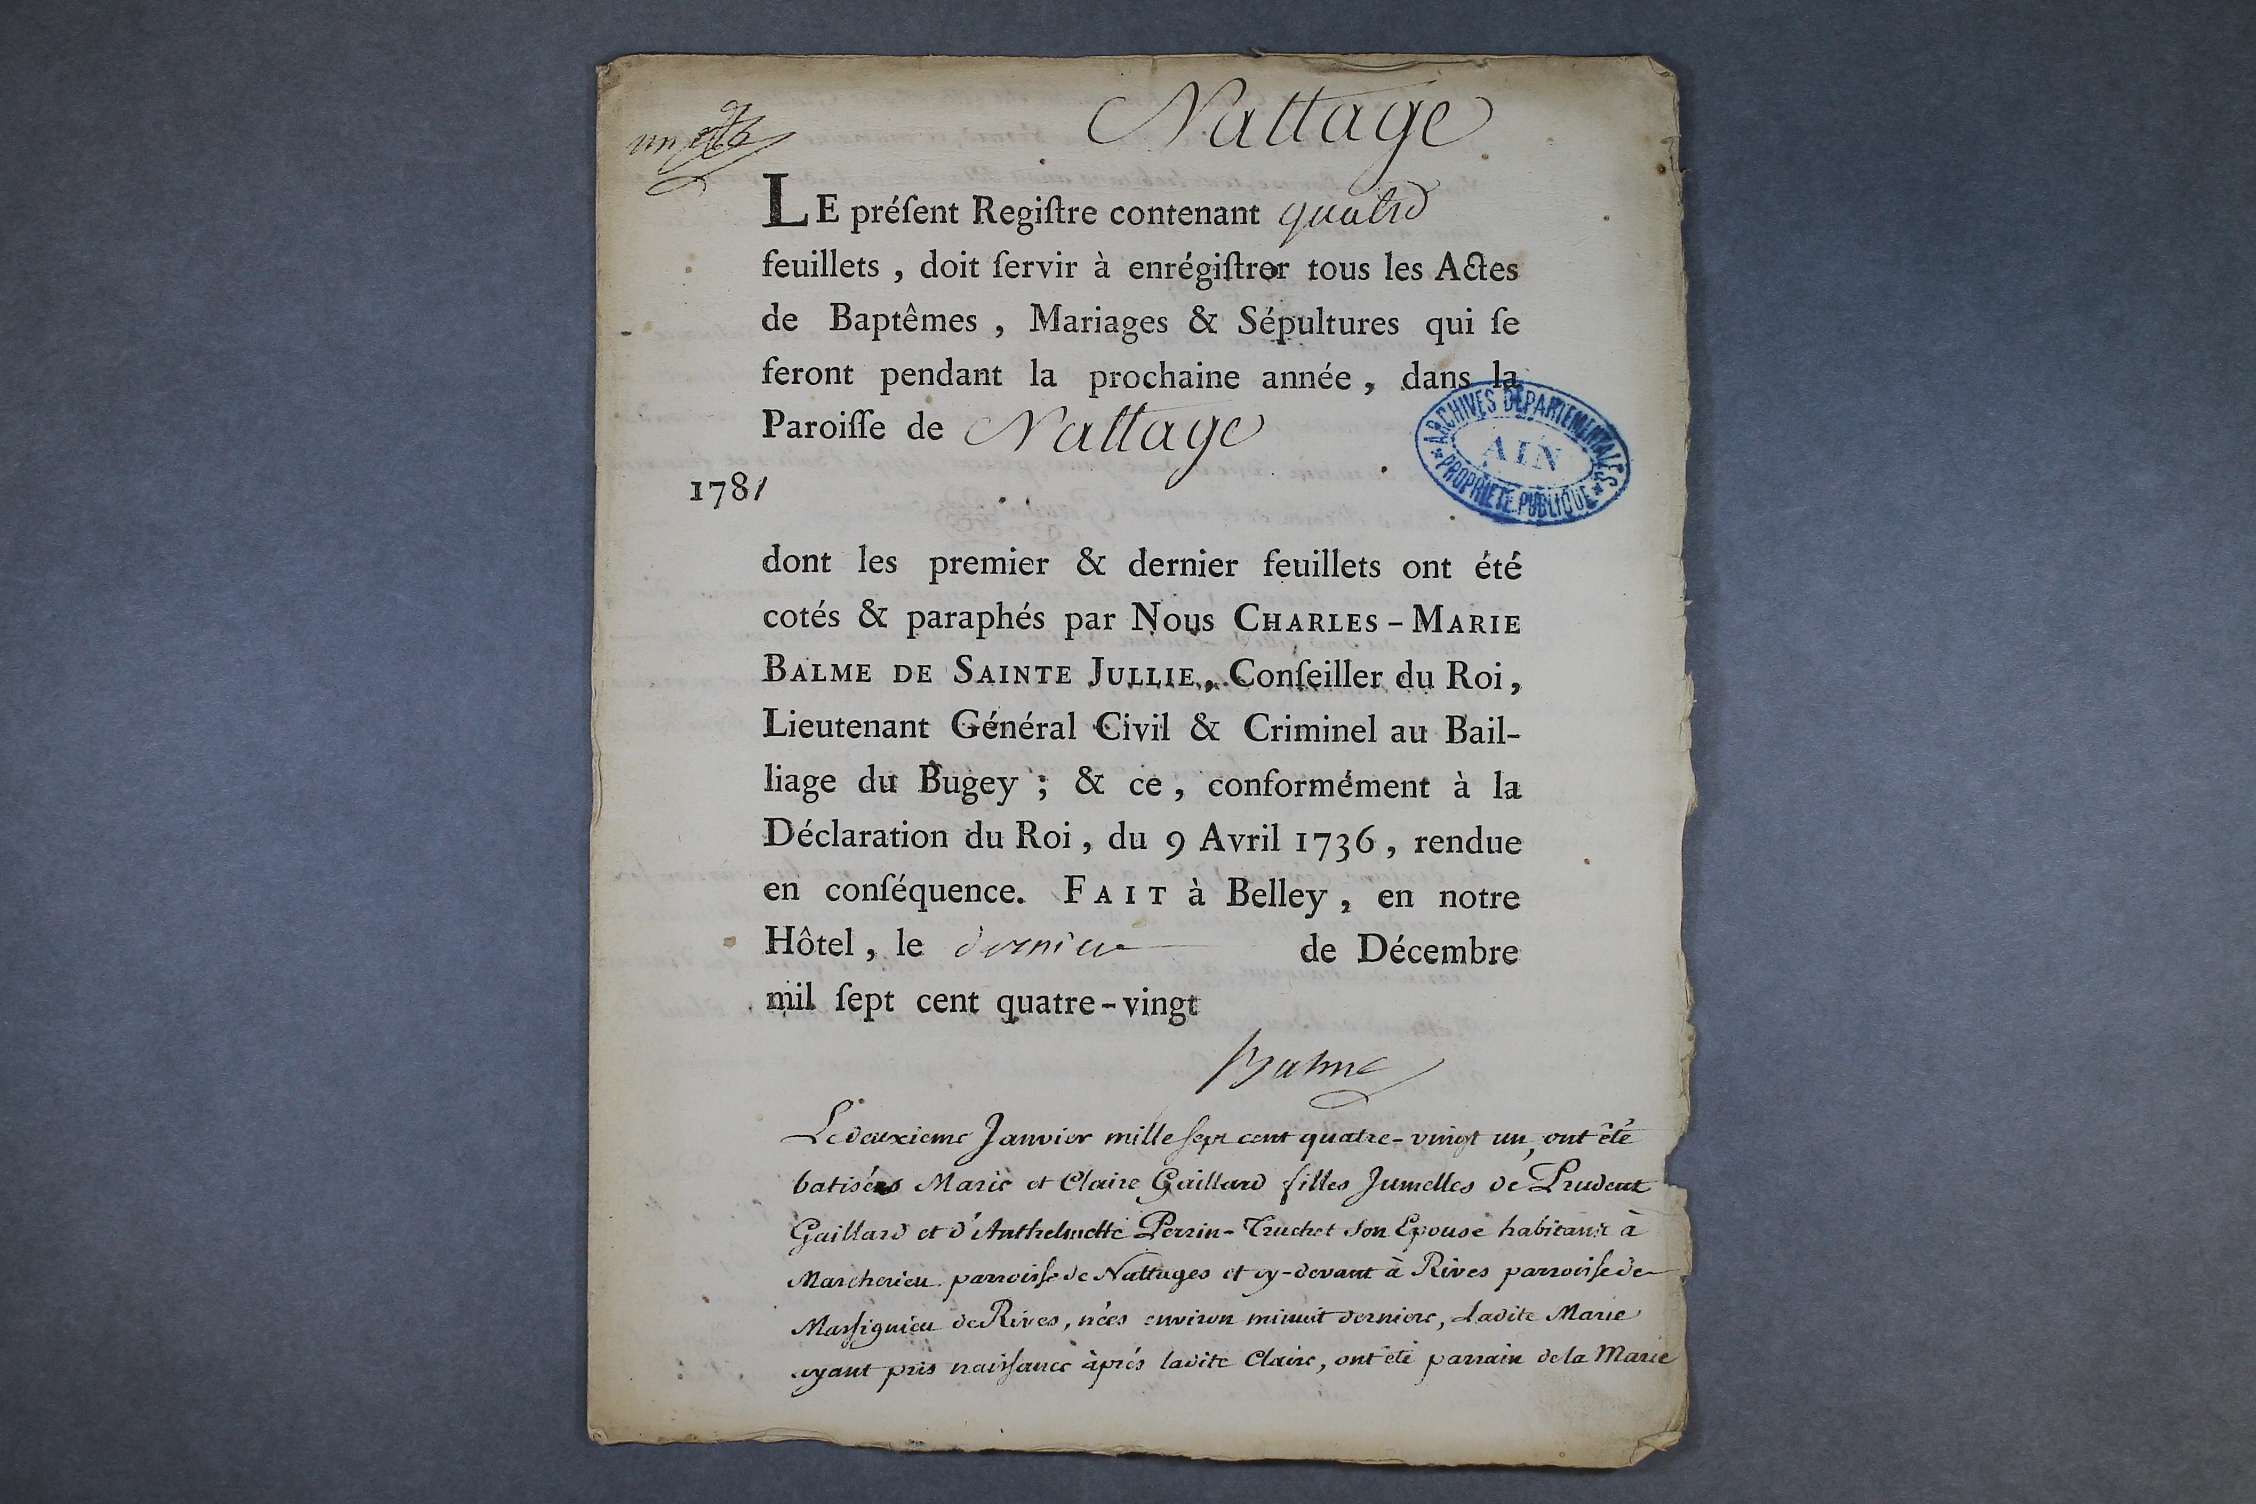 Nattage
un
LE préſent Regiſtre contenant quatre
feuillets , doit ſervir à enrégiſtrer tous les Actes
de Baptêmes , Mariages & Sépultures qui ſe
feront pendant la prochaine année , dans la
Paroiſſe de Nattage
ARCHIVES DEPARTEMENTALES
AIN
PROPRIETE PUBLIQUE
1781
dont les premier & dernier feuillets ont été
cotés & paraphés par Nous CHARLES - MARIE
BALME DE SAINTE JULLIE, Conſeiller du Roi ,
Lieutenant Général Civil & Criminel au Bail-
liage du Bugey ; & ce , conformément à la
Déclaration du Roi , du 9 Avril 1736 , rendue
en conſéquence. FAIT à Belley , en notre
Hôtel , le dernier de Décembre
mil ſept cent quatre-vingt
Balme
Le deuxieme Janvier mille sept cent quatre-vingt un, ont été
batisées Marie et Claire Gaillard filles Jumelles de Prudent
Gaillard et d'Anthelmette Perrin-Truchet son Epouse habitant à
Marcherieu parroisse de Nattages et cy-devant à Rives parroisse de
Massignieu de Rives, nées environ minuit derniere, Ladite Marie
ayant pris naissance àprés ladite Claire, ont été parrain de la Marie